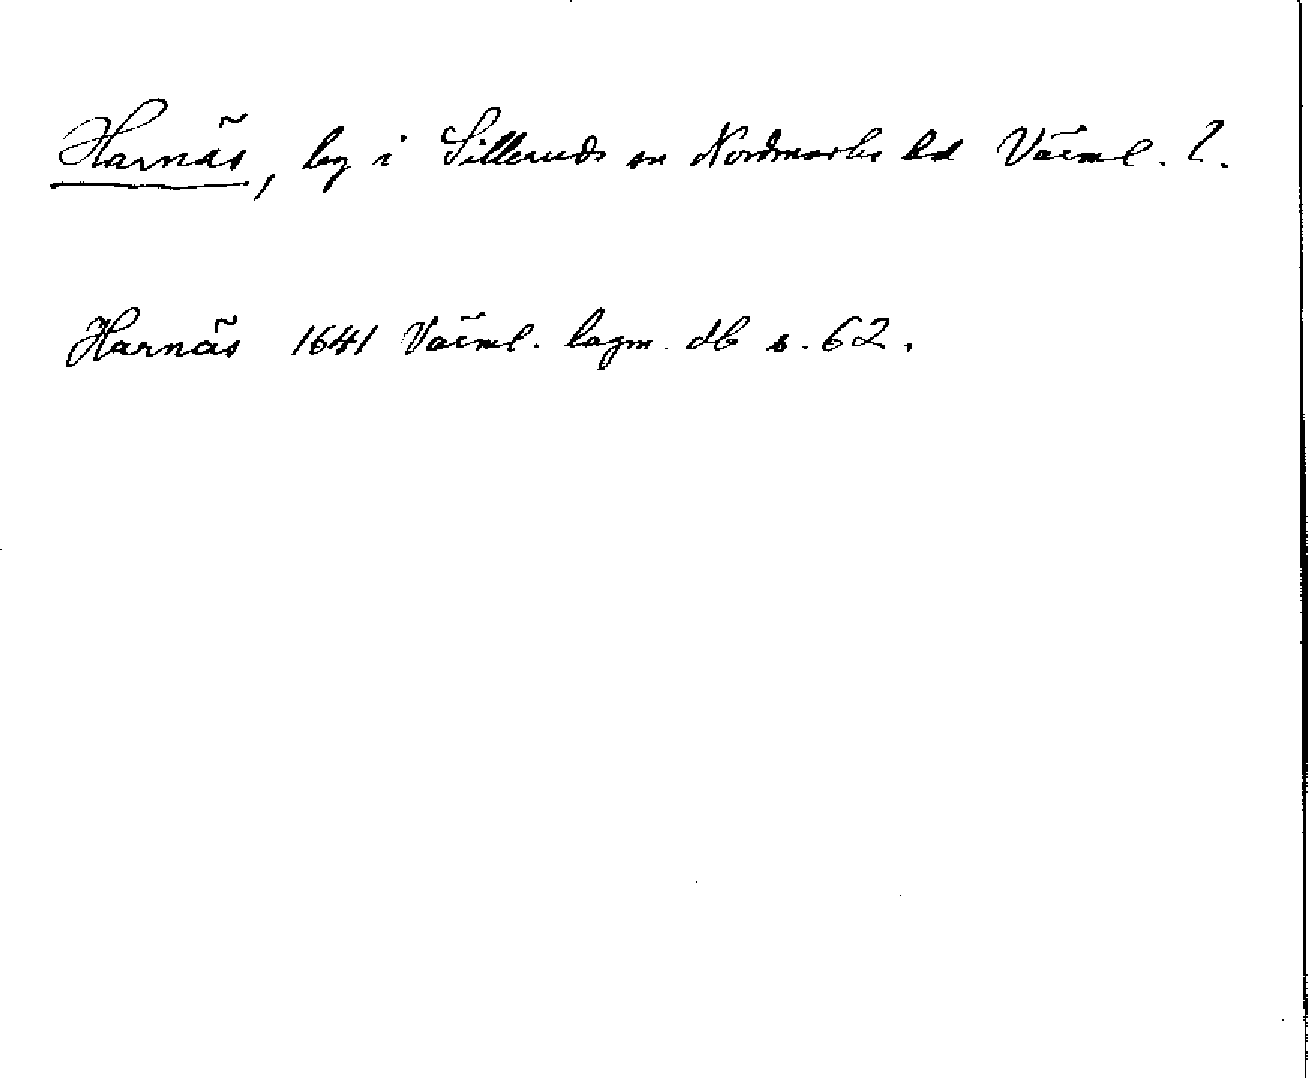 Harnäs, by i Silleruds sn Nordmarks hd Värml. l.
Harnäs 1641 Värml. lagm. db s. 62.